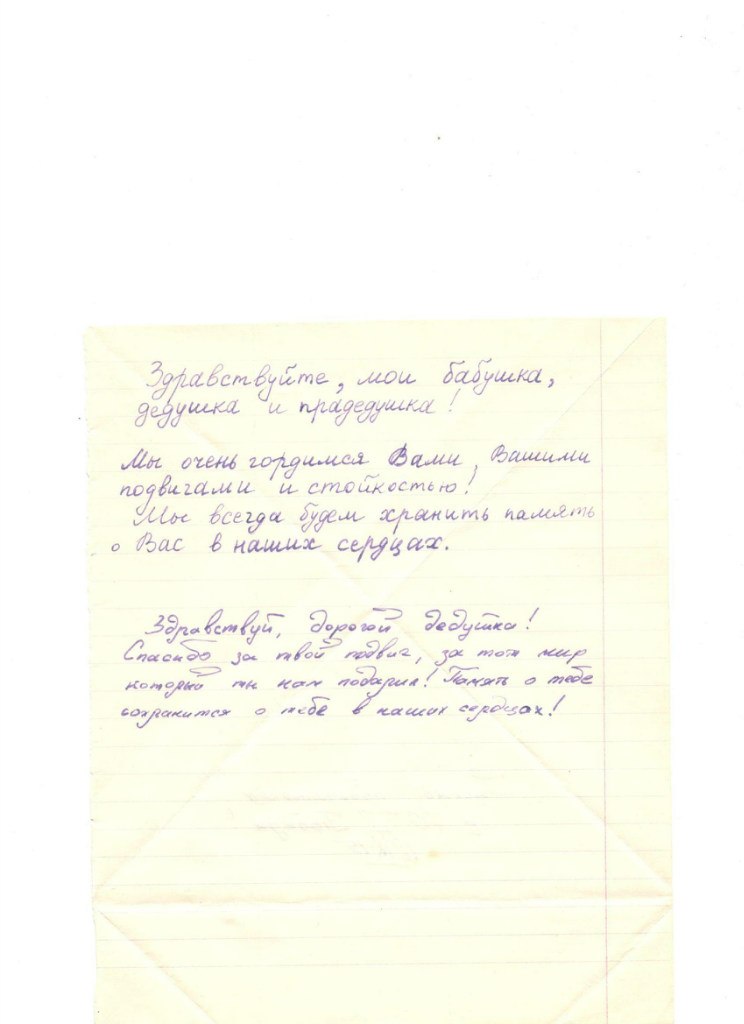 Здравствуйте, мои бабушка,
дедушка и прадедушка!
Мы очень гордимся Вами, Вашими
подвигами и стойкостью!
Мы всегда будем хранить память
о Вас в наших сердцах.
Здравствуй, дорогой дедушка!
Спасибо за твой подвиг, за тот мир
который ты нам подарил! Память о тебе
сохранится о тебе в наших сердцах!